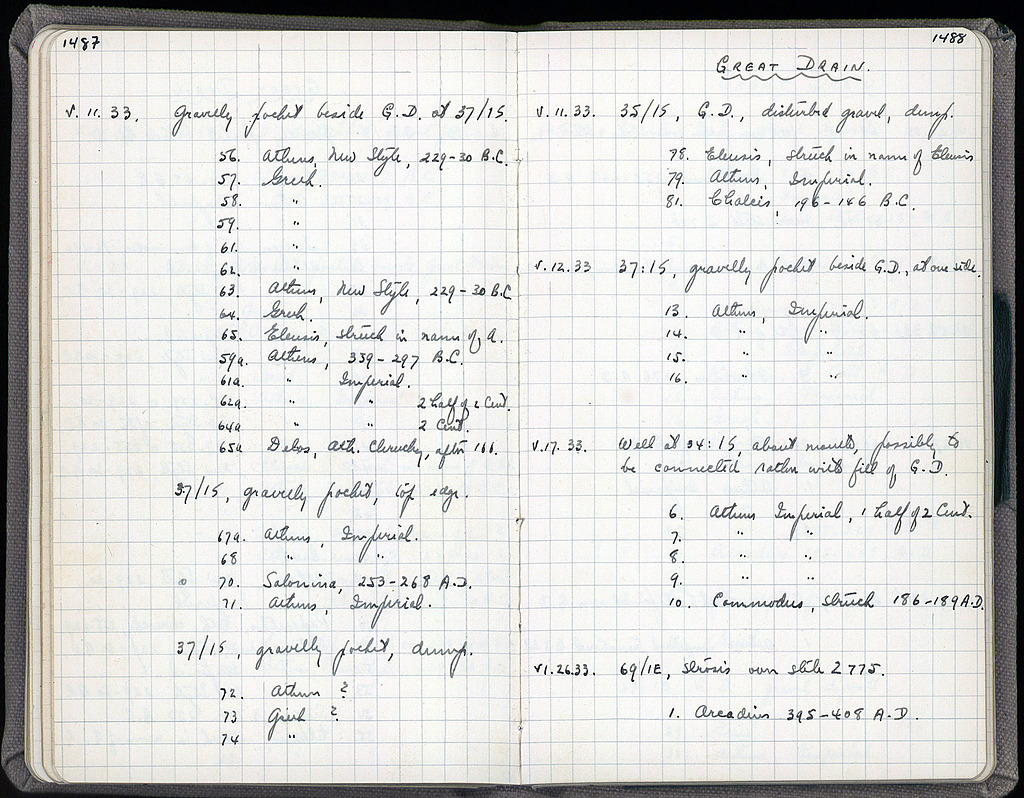 1487
V. 11. 33. Gravelly pocket beside G.D. at 37/15.
56. Athens, New Style, 229-30 B.C.
57. Greek.
58. "
59. "
61. "
62. "
63. Athens, New Style, 229-30 B.C.
64. Greek.
65. Eleusis, struck in name of A.
59a. Athens, 339-297 B.C.
61a. " Imperial.
62a. " " 2 half of 2 Cent.
64a " " 2 Cent.
65a Delos, Ath. Cleruchy, after 166.
37/15, gravelly pocket, top edge.
67a. Athens, Imperial.
68 " "
o 70. Salonina, 253-268 A.D.
71. Athens, Imperial.
37/15, gravelly pocket, dump.
72. Athens ?
73 Greek ?
74 "
1488
GREAT DRAIN.
V. 11. 33. 35/15, G.D., disturbed gravel, dump.
78. Eleusis, struck in name of Eleusis
79. Athens, Imperial.
81. Chalcis, 196-146 B.C.
V. 12. 33 37:15, gravelly pocket beside G.D., at one side.
13. Athens, Imperial.
14. " "
15. " "
16. " "
V. 17. 33. Well at 34:15, about mouth, possibly to
be connected rather with fill of G.D.
6. Athens Imperial, 1 half of 2 Cent.
7. " "
8. " "
9. " "
10. Commodus, struck 186-189 A.D.
VI. 26. 33. 69/IE, strosis over stele 2 775.
1. Arcadius 395-408 A.D.